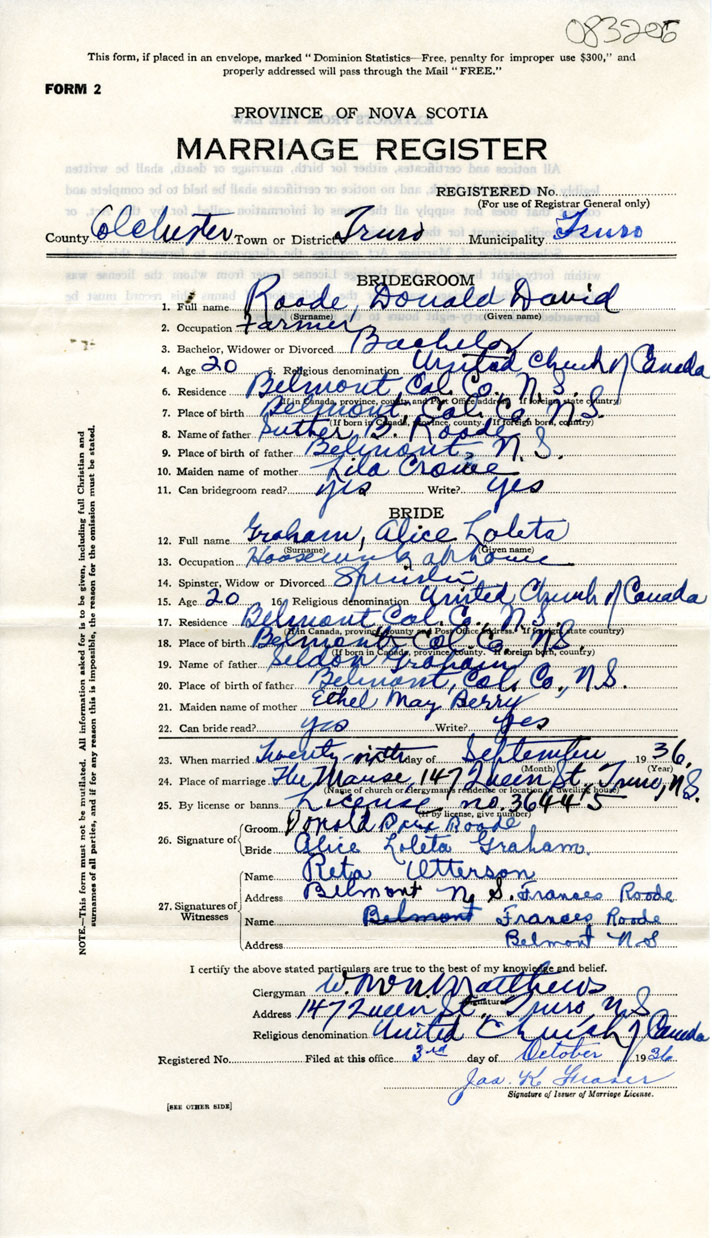 083206
This form, if placed in an envelope, marked "Dominion Statistics—Free, penalty for improper use $300," and
properly addressed will pass through the Mail "FREE."
FORM 2
PROVINCE OF NOVA SCOTIA
MARRIAGE REGISTER
REGISTERED No.
(For use of Registrar General only)
County Colchester Town or District Truro Municipality Truro
BRIDEGROOM
1. Full name Roode, Donald David
(Surname) (Given name)
2. Occupation Farmer
3. Bachelor, Widower or Divorced Bachelor
4. Age 20 5. Religious denomination United Church of Canada
6. Residence Belmont, Col. Co., N.S.
(If in Canada, province, county and Post Office address. If foreign state country)
7. Place of birth Belmont, Col. Co. N.S.
(If born in Canada, province, county. If foreign born, country)
8. Name of father Luther B. Roode
9. Place of father Belmont, N.S.
10. Maiden name of mother Lila Crowe
11. Can bridegroom read? yes Write? yes
BRIDE
12. Full name Graham, Alice Loleta
(Surname) (Given name)
13. Occupation Housework at home
14. Spinster, Widow or Divorced Spinster
15. Age 20 16 Religious denomination United Church of Canada
17. Residence Belmont Col. Co., N.S.
(If in Canada, province, county and Post Office Address. If foreign state country)
18. Place of birth Belmont, Col. Co. N.S.
(If born in Canada, province, county. If foreign born, country)
19. Name of father Seldon Graham
20. Place of birth of father Belmont, Col. Co., N.S.
21. Maiden name of mother Ethel May Berry
22. Can bride read? yes Write? yes
23. When married Twenty- day of September 1936.
(Month) (Year)
24. Place of marriage The Manse, 147 Queen St., Truro, N.S.
(Name of church or clergyman's residence or location of dwelling house)
25. By license or banns License no. 36445
(If by license, give number)
26. Signature of
Groom Donald Roode
Bride Alice Loleta Graham.
27. Signatures of Witnesses
Name Reta Utterson
Address Belmont N.S. Frances Roode
Name Belmont Frances Roode
Address Belmont N.S
NOTE.—This form must not be mutilated. All information asked for is to be given, including full Christian and
surnames of all parties, and if for any reason this is impossible, the reason for the omission must be stated.
I certify the above stated particulars are true to the best of my knowledge and belief.
Clergyman W. Matthews
Signature
Address 147 Queen St., Truro, N.S.
Religious denomination United Church of Canada
Registered No. Filed at this office 3rd day of October 1936
Jas. K. Fraser
Signature of Issuer of Marriage License.
[SEE OTHER SIDE]